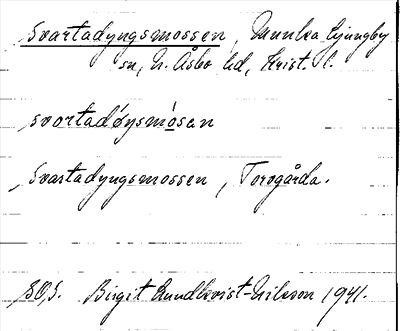 Svartadyngsmossen, Munka Ljungby
sn, N. Åsbo hd, Krist. l.
svortadýysmósan
Svartadyngsmossen, Torvgårda.
S.O.S. Birgit Lundkvist-Nilsson 1941.